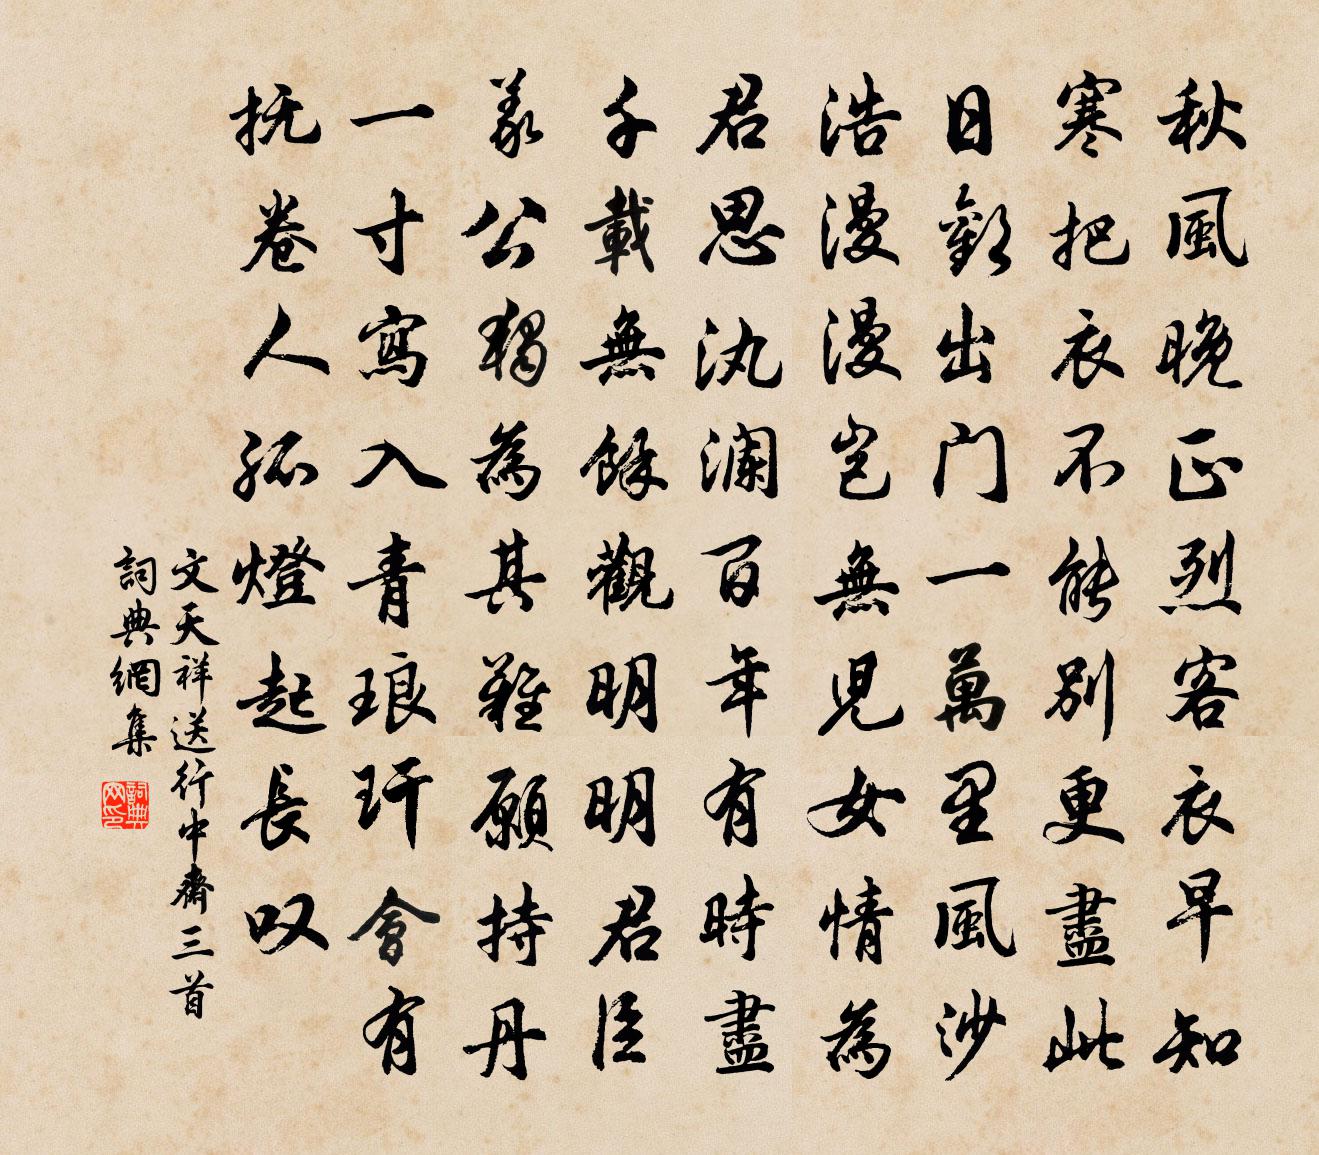 秋風晚正烈客衣早知
寒把衣不能別更盡此
日歡出門一萬里風沙
浩漫漫豈無兒女情為
君思汍瀾百年有時盡
千載無餘觀明明君臣
義公獨為其難願持丹
一寸寫入青琅玕會有
抚卷人孤燈起長叹
文天祥送行中齋三首
詞典網集
詞典网印